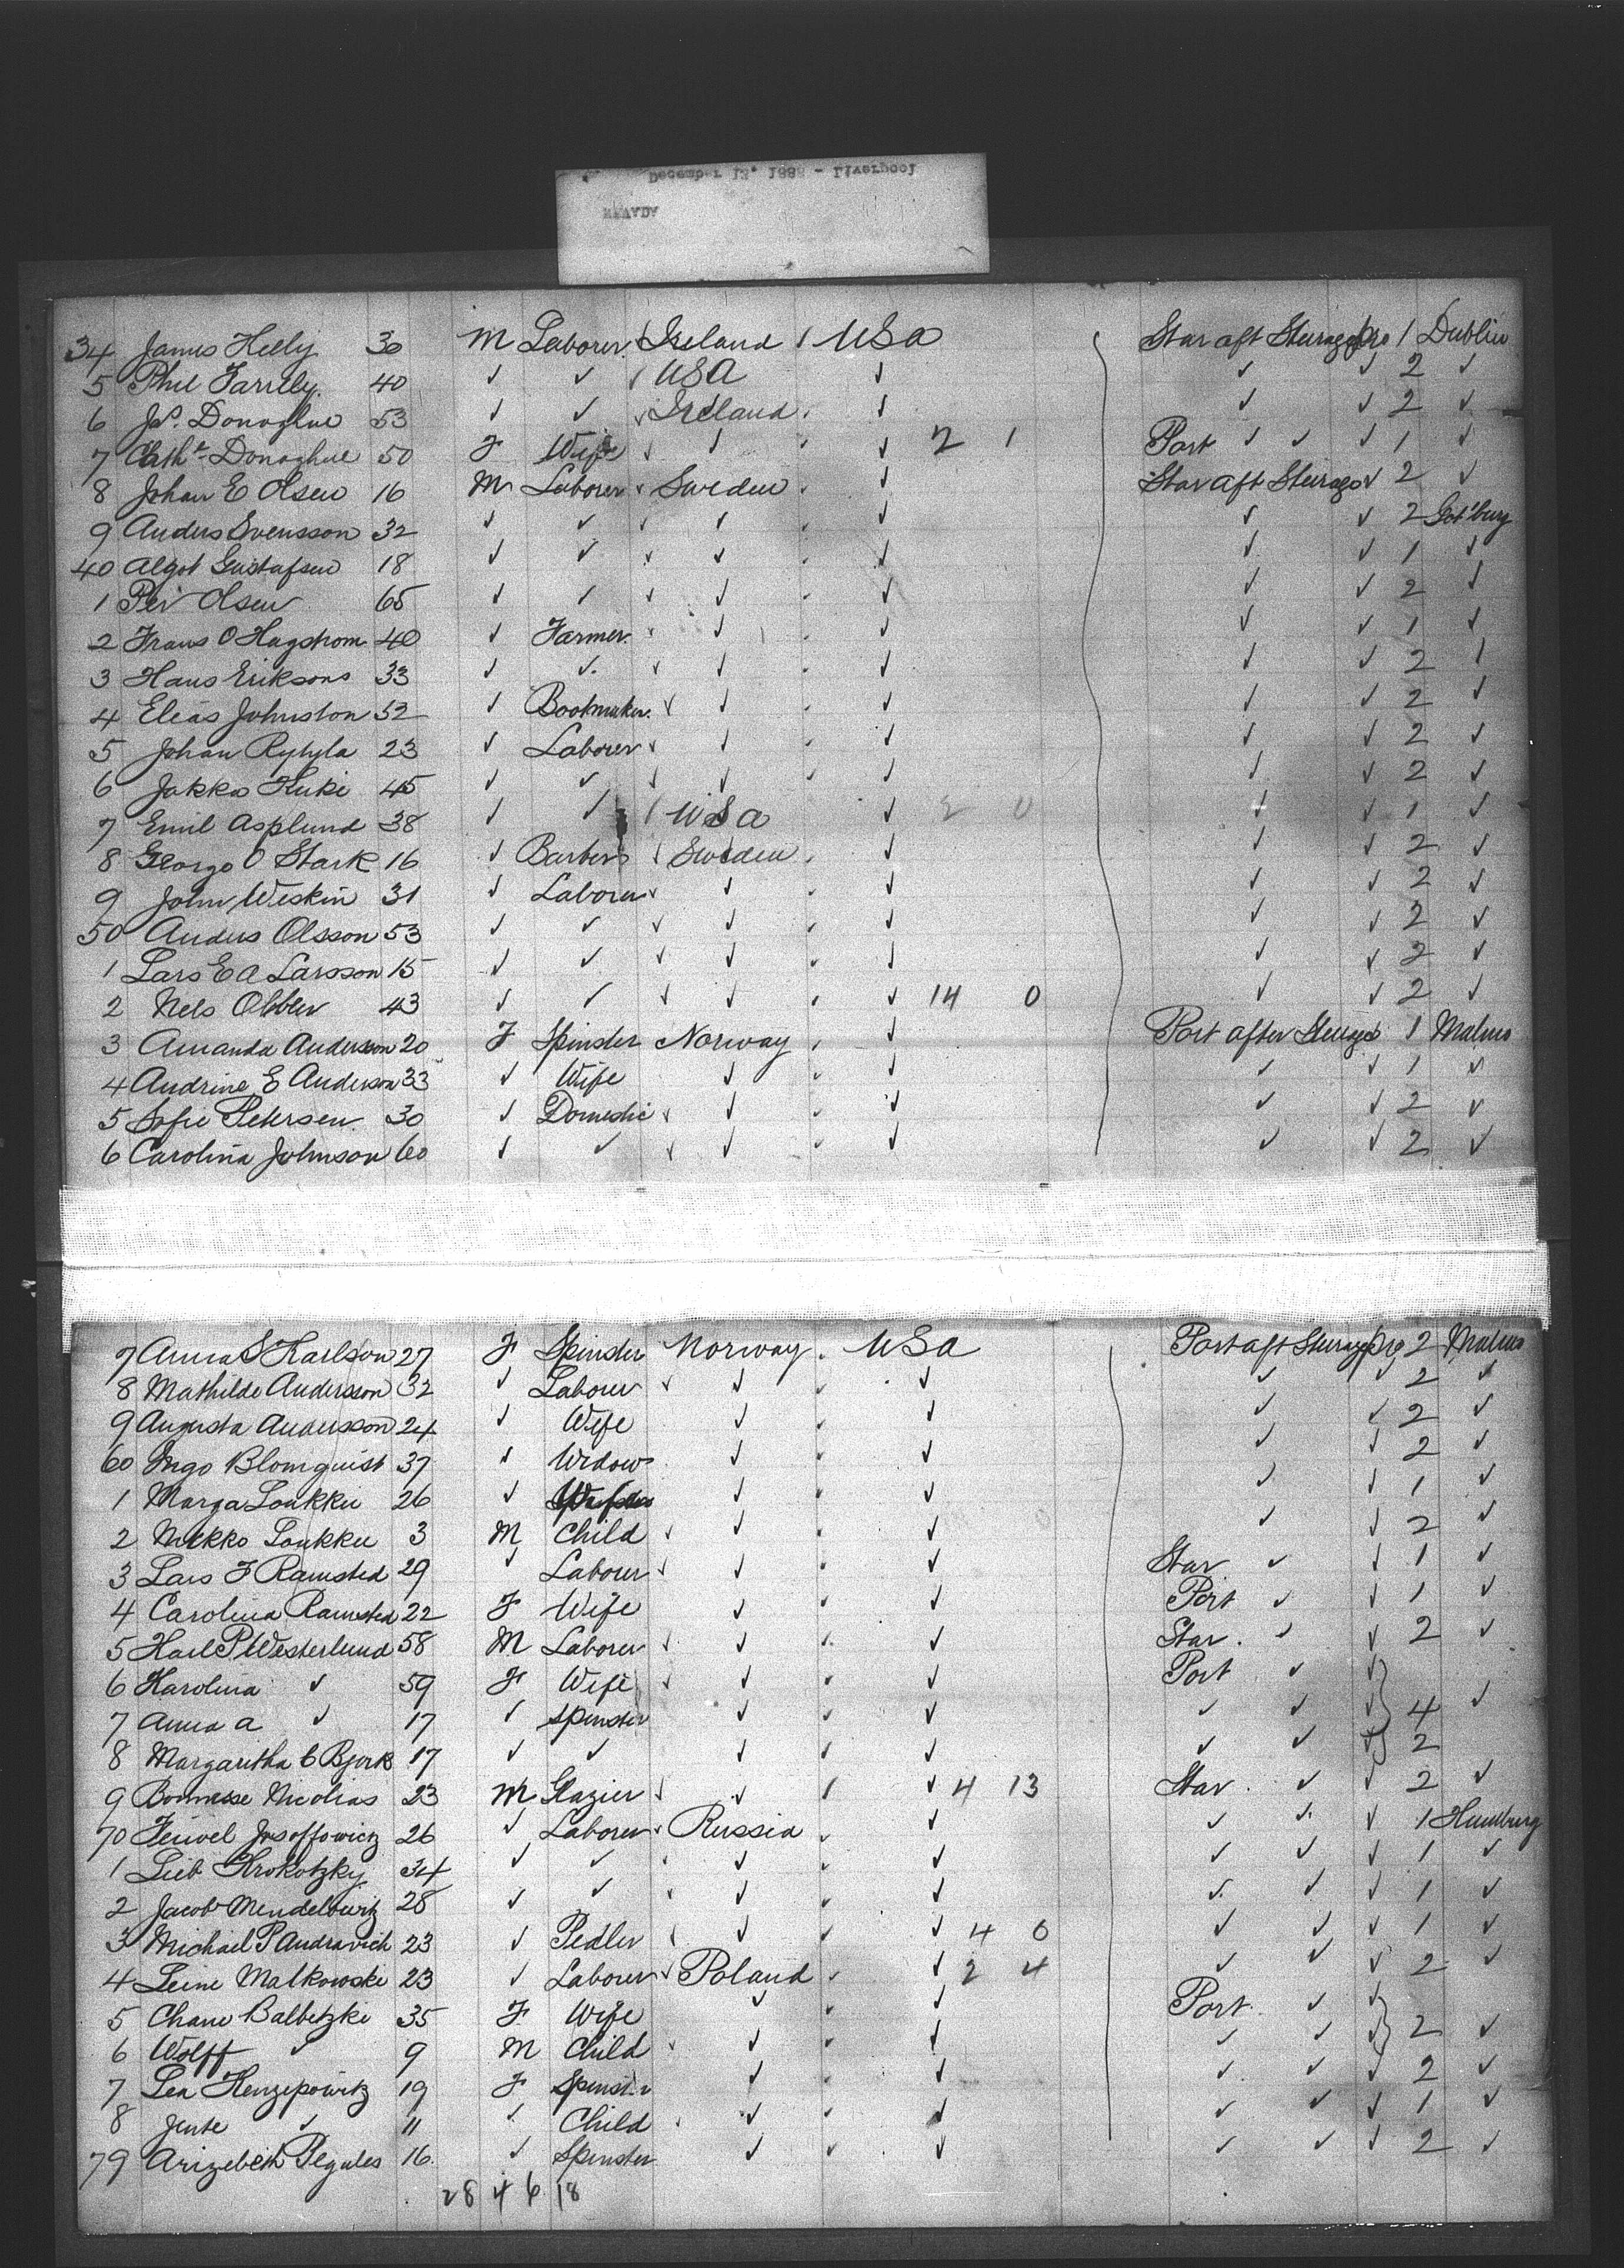 December 12' 1888 - Liverpool
34 James Kelly 30 M Laborer Ireland USA Star aft Steerage Pro 1 Dublin
5 Phil Farrelly 40 ✓ ✓ USA ✓ ✓ ✓ 2 ✓
6 Js. Donoghue 53 ✓ ✓ Ireland ✓ ✓ ✓ 2 ✓
7 Cathe Donoghue 50 F Wife ✓ ✓ 2 1 Port ✓ ✓ ✓ 1 ✓
8 Johan E Olsen 16 M Laborer Sweden ✓ Star aft Steerage ✓ 2 ✓
9 Anders Svensson 32 ✓ ✓ ✓ ✓ ✓ ✓ 2 Got'burg
40 Algot Gustafsen 18 ✓ ✓ ✓ ✓ ✓ ✓ 1 ✓
1 Per Olsen 65 ✓ ✓ ✓ ✓ ✓ ✓ 2 ✓
2 Frans O Hagstrom 40 ✓ Farmer ✓ ✓ ✓ ✓ 1 ✓
3 Hans Eriksons 33 ✓ ✓ ✓ ✓ ✓ ✓ 2 ✓
4 Elias Johnston 52 ✓ Bootmaker ✓ ✓ ✓ ✓ 2 ✓
5 Johan 23 ✓ Laborer ✓ ✓ ✓ ✓ 2 ✓
6 Jakko Kuki 45 ✓ ✓ ✓ ✓ ✓ ✓ 2 ✓
7 Emil Asplund 38 ✓ ✓ USA ✓ 2 0 ✓ ✓ 1 ✓
8 George O Stark 16 ✓ Barber Sweden ✓ ✓ ✓ 2 ✓
9 John Weskin 31 ✓ Laborer ✓ ✓ ✓ ✓ 2 ✓
50 Anders Olsson 53 ✓ ✓ ✓ ✓ ✓ ✓ 2 ✓
1 Lars E A Larsson 15 ✓ ✓ ✓ ✓ ✓ ✓ 2 ✓
2 Nels 43 ✓ ✓ ✓ ✓ 14 0 ✓ ✓ 2 ✓
3 Amanda Anderson 20 F Spinster Norway ✓ Port after Steerage 1 Malmo
4 Andrine E Anderson 33 ✓ Wife ✓ ✓ ✓ ✓ 1 ✓
5 Sofie Petersen 30 ✓ Domestic ✓ ✓ ✓ ✓ 2 ✓
6 Carolina Johnson 60 ✓ ✓ ✓ ✓ ✓ ✓ 2 ✓
7 Anna S Karlson 27 F Spinster Norway USA Port aft Steerage Pro 2 Malmo
8 Mathilde Andersson 32 ✓ Laborer ✓ ✓ ✓ ✓ 2 ✓
9 Augusta Andersson 24 ✓ Wife ✓ ✓ ✓ ✓ 2 ✓
60 Ingo Blomquist 37 ✓ Widow ✓ ✓ ✓ ✓ 2 ✓
1 Marga Loukku 26 ✓ ✓ ✓ ✓ ✓ 1 ✓
2 Mikko Loukku 3 M Child ✓ ✓ ✓ ✓ 2 ✓
3 Lars F Ramsted 29 ✓ Laborer ✓ ✓ Star ✓ ✓ 1 ✓
4 Carolina Ramsted 22 F Wife ✓ ✓ Port ✓ ✓ 1 ✓
5 Karl P Westerlund 58 M Laborer ✓ ✓ Star ✓ ✓ 2 ✓
6 Karolina ✓ 59 F Wife ✓ ✓ Port ✓ ✓
7 Anna A ✓ 17 ✓ Spinster ✓ ✓ ✓ ✓ ✓ 4 ✓
8 Margaritha C Bjork 17 ✓ ✓ ✓ ✓ ✓ ✓ ✓ 2
9 Nicolias 23 M Glazier ✓ ✓ 4 13 Star ✓ ✓ 2 ✓
70 Feiwel Josoffowicz 26 ✓ Laborer Russia ✓ ✓ ✓ 1 Hamburg
1 Lieb Krokotzky 34 ✓ ✓ ✓ ✓ ✓ ✓ ✓ 1 ✓
2 Jacob Mendelowitz 28 ✓ ✓ ✓ ✓ ✓ ✓ ✓ 1 ✓
3 Michael P Audravich 23 ✓ Pedler ✓ ✓ 4 0 ✓ ✓ ✓ 1 ✓
4 Leine Malkowski 23 ✓ Laborer Poland ✓ 2 4 ✓ ✓ ✓ 2 ✓
5 Chane Balbetzki 35 F Wife ✓ ✓ Port ✓ ✓
6 Wolff ✓ 9 M Child ✓ ✓ ✓ ✓ ✓ 2 ✓
7 Lea 19 F Spinster ✓ ✓ ✓ ✓ ✓ 2 ✓
8 Jente ✓ 11 ✓ Child ✓ ✓ ✓ ✓ ✓ 1 ✓
79 Arizebeth Pegules 16 ✓ Spinster ✓ ✓ ✓ ✓ ✓ 2 ✓
28 4 6 18